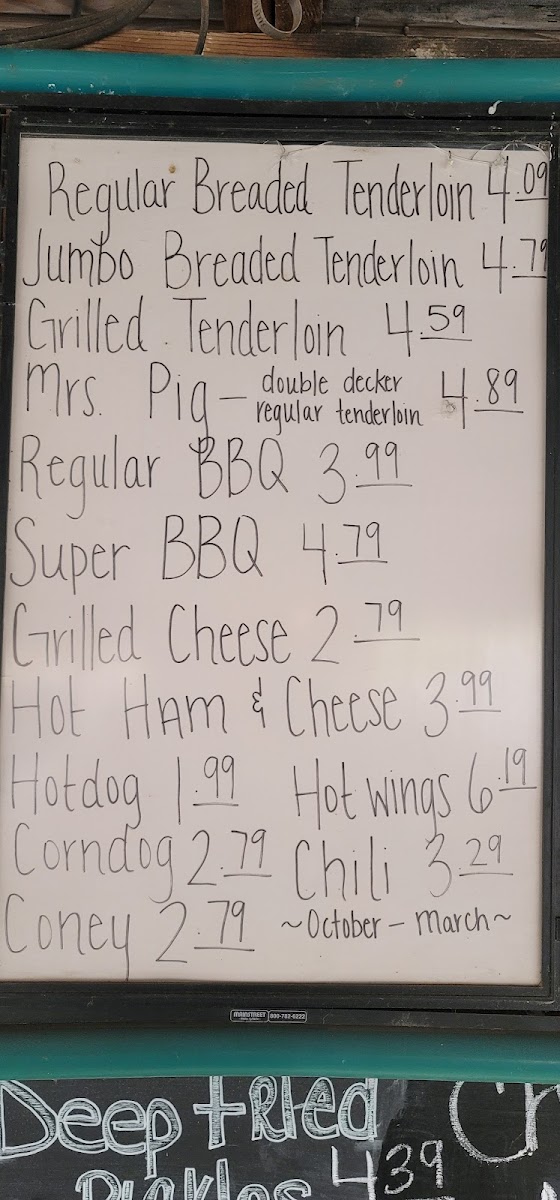 Regular Breaded Tenderloin 4.09
Jumbo Breaded Tenderloin 4.79
Grilled Tenderloin 4.59
Mrs. Pig - double decker regular tenderloin 4.89
Regular BBQ 3.99
Super BBQ 4.79
Grilled Cheese 2.79
Hot Ham & Cheese 3.99
Hotdog 1.99 Hot wings 6.19
Corndog 2.79 Chili 3.29
Coney 2.79 ~October - March~
MAINSTREET 800-782-6222
Deep FRied
Pickles 439